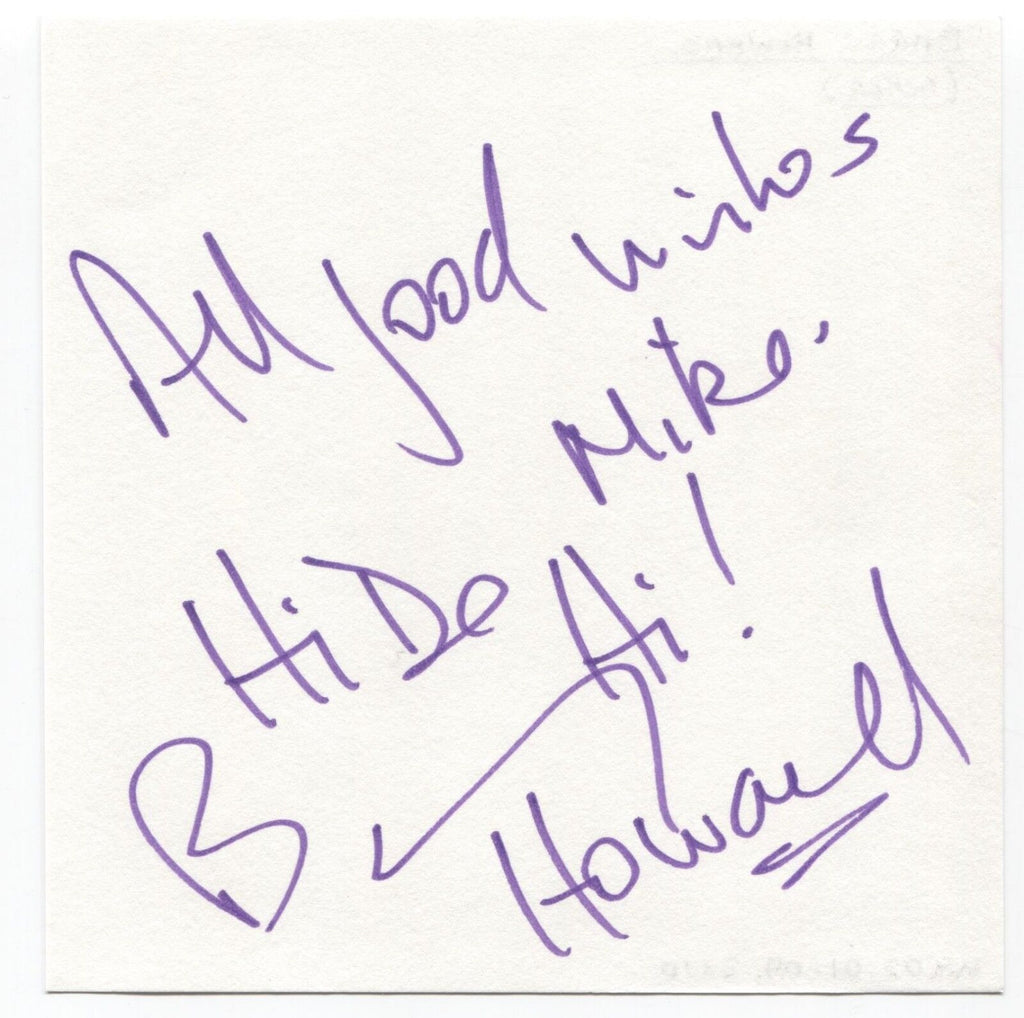 All good wishes
Mike.
Hi De Hi!
B
Howard